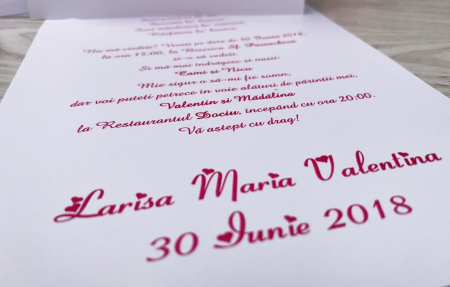 Nu mă credeți? Veniți pe data de 30 Iunie 2018,
la ora 15:00, la Biserica Sf. Paraschiva
și-o să vedeți.
Și mă mai îndrăgesc și nașii:
Cami și Nicu
Mie sigur o să-mi fie somn,
dar voi puteți petrece în voie alături de părinții mei,
Valentin și Mădălina
la Restaurantul Dociu, începând cu ora 20:00.
Vă aștept cu drag!
Larisa Maria Valentina
30 Iunie 2018